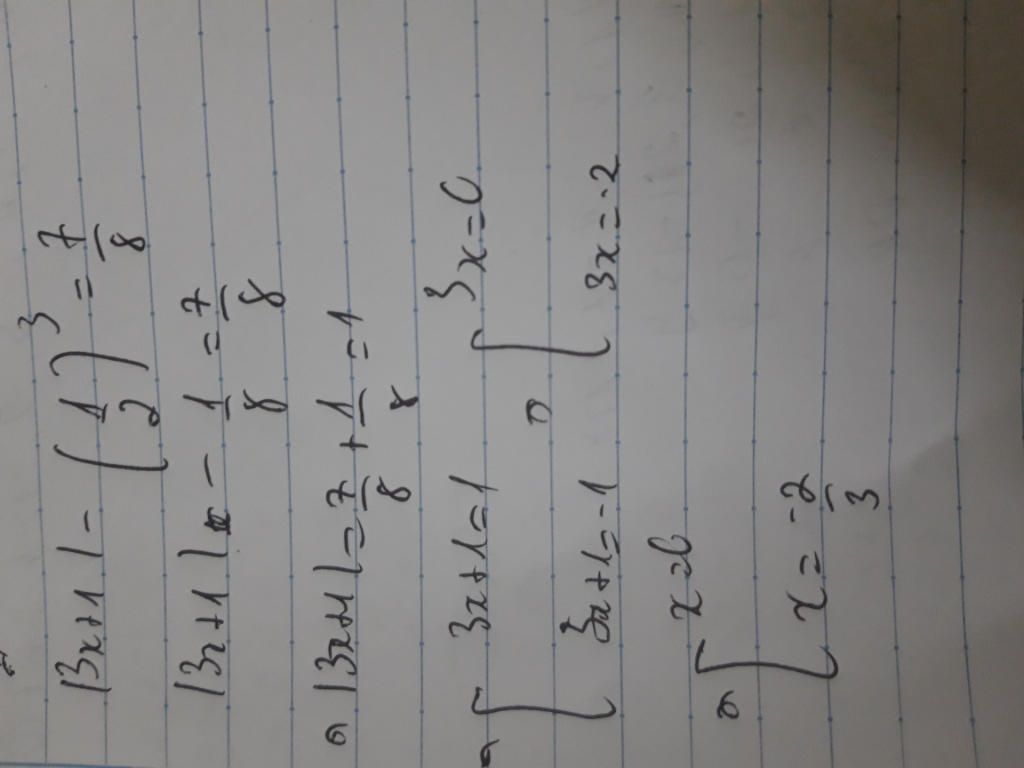 |3x+1| - (1/2)^3 = 7/8
|3x+1| - 1/8 = 7/8
⇒ |3x+1| = 7/8 + 1/8 = 1
⇒ [ 3x+1=1 ⇒ [ 3x=0
3x+1=-1 3x=-2
⇒ [ x=0
x = -2/3